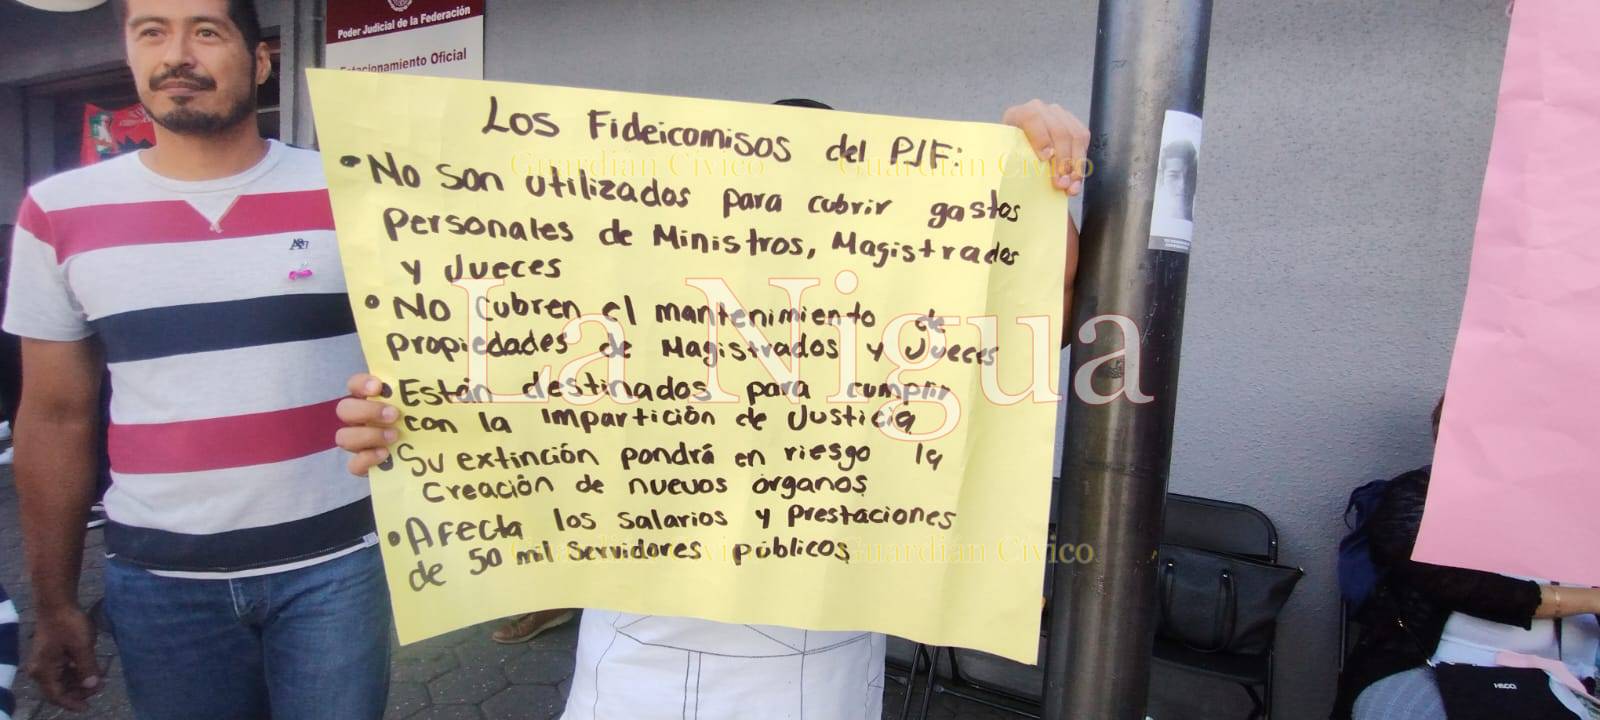 Poder Judicial de la Federación
Estacionamiento Oficial
Los Fideicomisos del PJF:
• No son utilizados para cubrir gastos
personales de Ministros, Magistrados
y Jueces
• No cubren el mantenimiento de
propiedades de Magistrados y Jueces
• Están destinados para cumplir
con la Impartición de Justicia
• Su extinción pondrá en riesgo la
creación de nuevos órganos
• Afecta los salarios y prestaciones
de 50 mil servidores públicos
Guardian Civico Guardian Civico
La Nigua
Guardian Civico Guardian Civico